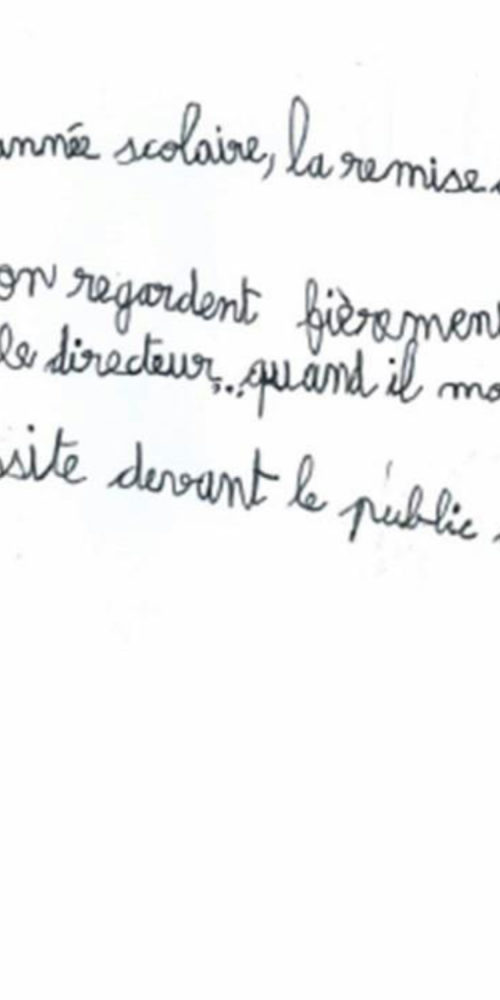 année scolaire, la remise
on regardent fièrement
le directeur, quand il mo
ssite devant le public